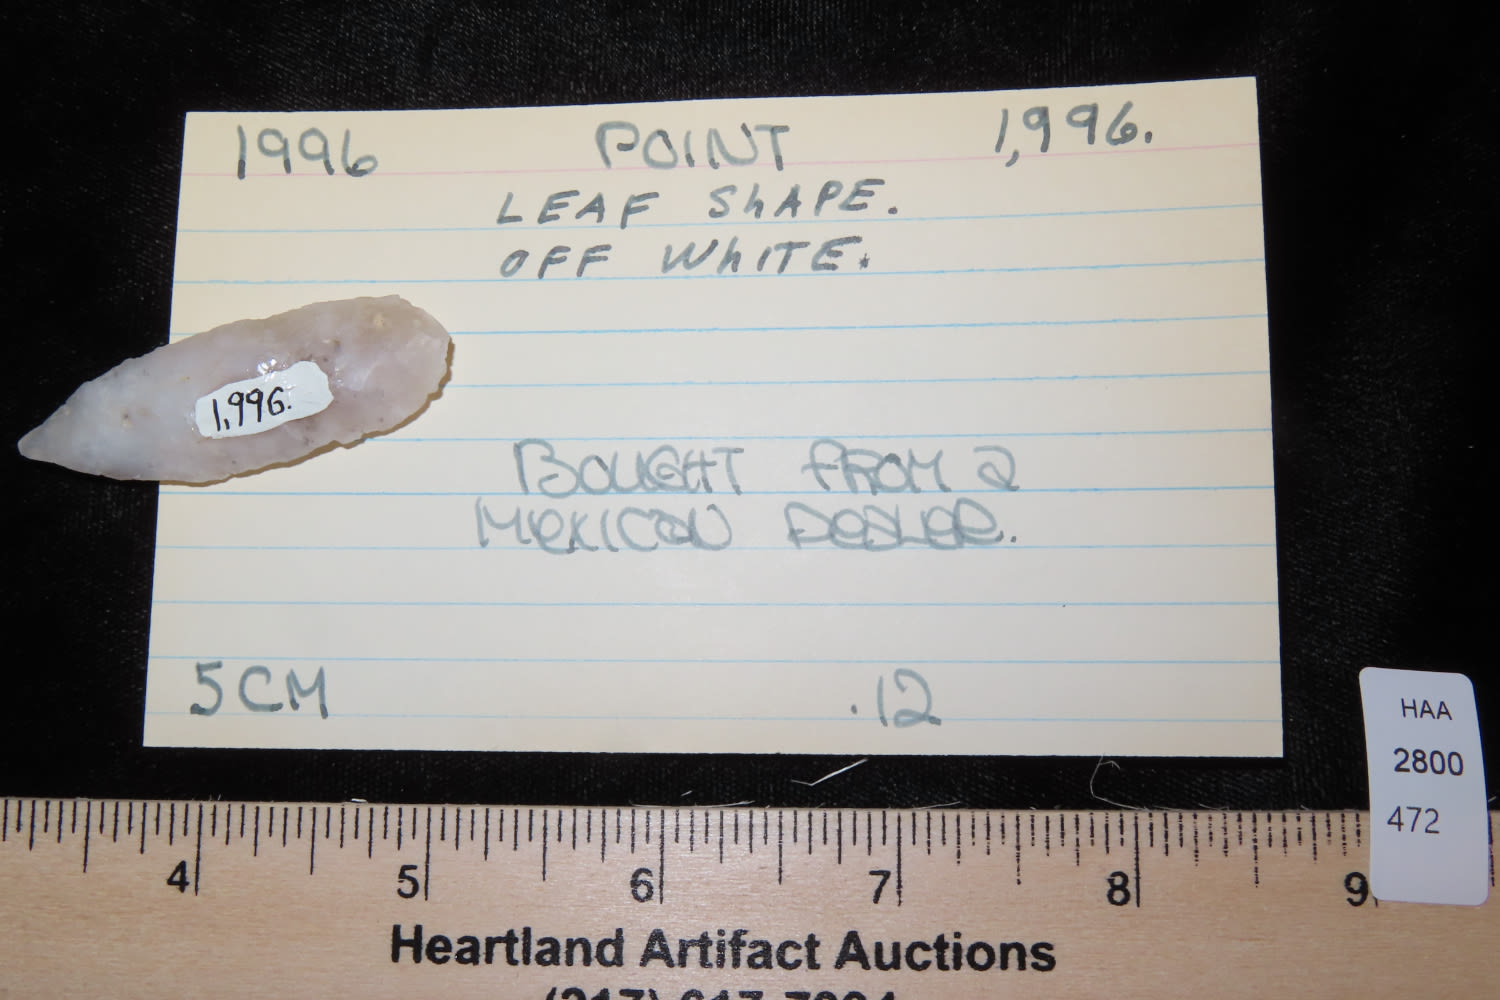 1996 POINT 1,996.
LEAF SHAPE.
OFF WHITE.
1,996.
BOUGHT FROM a
MEXICAN DEALER.
5 CM .12
HAA
2800
472
4 5 6 7 8 9
Heartland Artifact Auctions